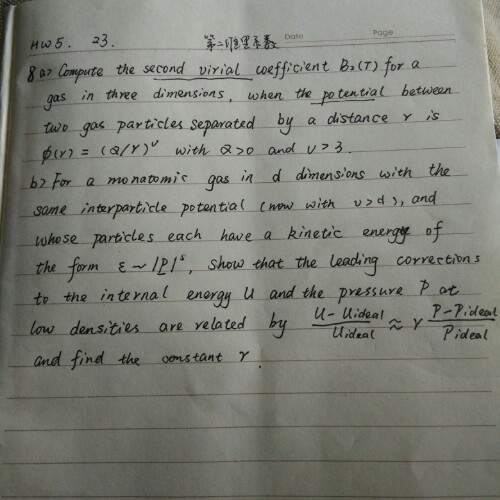 HW5. 23. 第二维里系数 Date Page
8 a> Compute the second virial coefficient B₂(T) for a
gas in three dimensions, when the potential between
two gas particles separated by a distance r is
φ(r) = (α/r)^ν with α>0 and ν>3.
b> For a monatomic gas in d dimensions with the
same interparticle potential (now with ν>d), and
whose particles each have a kinetic energy of
the form ε ~ |P|^s, show that the leading corrections
to the internal energy U and the pressure P at
low densities are related by (U - Uideal)/Uideal ≈ γ (P - Pideal)/Pideal
and find the constant γ.